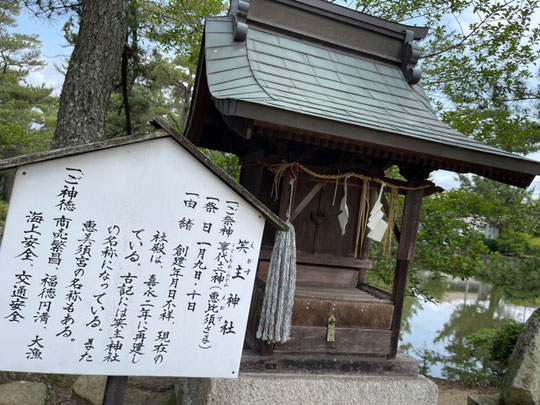 笑主神社
一、ご祭神 事代主神(恵比須さま)
一、祭日 一月九日・十日
一、由緒 創立年月日不詳、現在の
社殿は、嘉永二年に再建し
ている。古記には笑主神社
の名称になっている。また
恵美須宮の名称もある。
一、ご神徳 商売繁昌、福徳円満、大漁
海上安全、交通安全